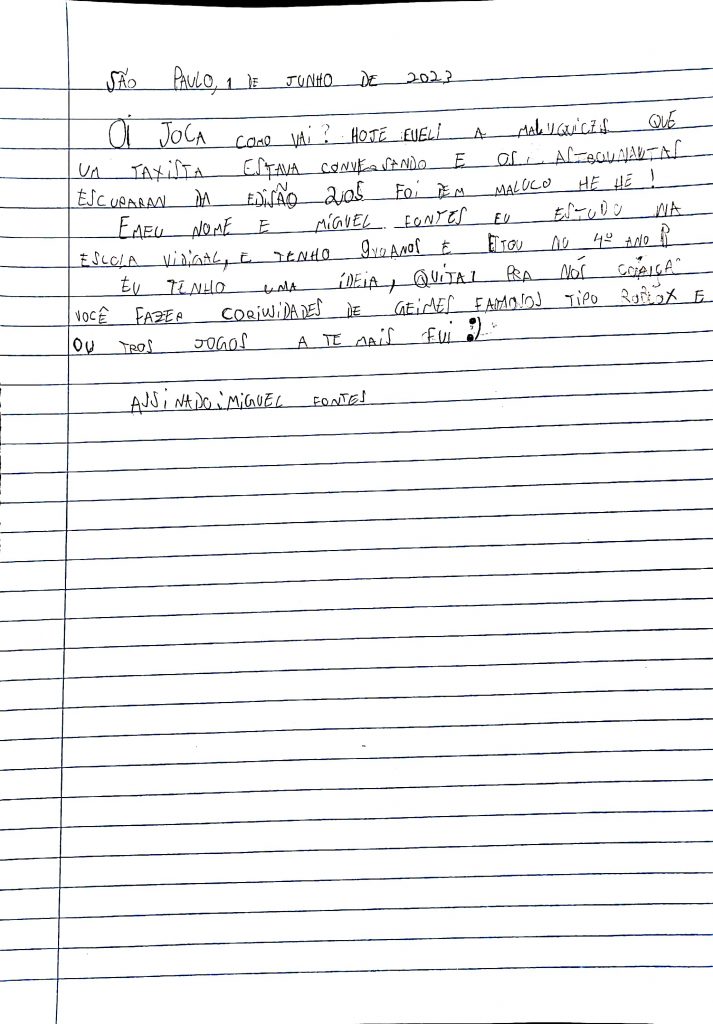 SÃO PAULO, 1 DE JUNHO DE 2023
OI JOCA COMO VAI? HOJE EU ELI A MALUQUICES QUE
UM TAXISTA ESTAVA CONVERSANDO E OS ASTROUNAUTAS
ESCUPARAN DA EDISÃO 205 FOI BEM MALUCO HE HE!
E MEU NOME E MIGUEL FONTES EU ESTUDO NA
ESCOLA VIDIGAL, E TENHO 9 ANOS E ETOU NO 4º ANO B
EU TENHO UMA IDEIA, QUITAL PRA NÓS CRIAÇA
VOCÊ FAZER CORIUSIDADES DE GEIMES FAMOSOS TIPO ROBLOX E
OU TROS JOGOS A TE MAIS FUI :)
ASSINADO: MIGUEL FONTES